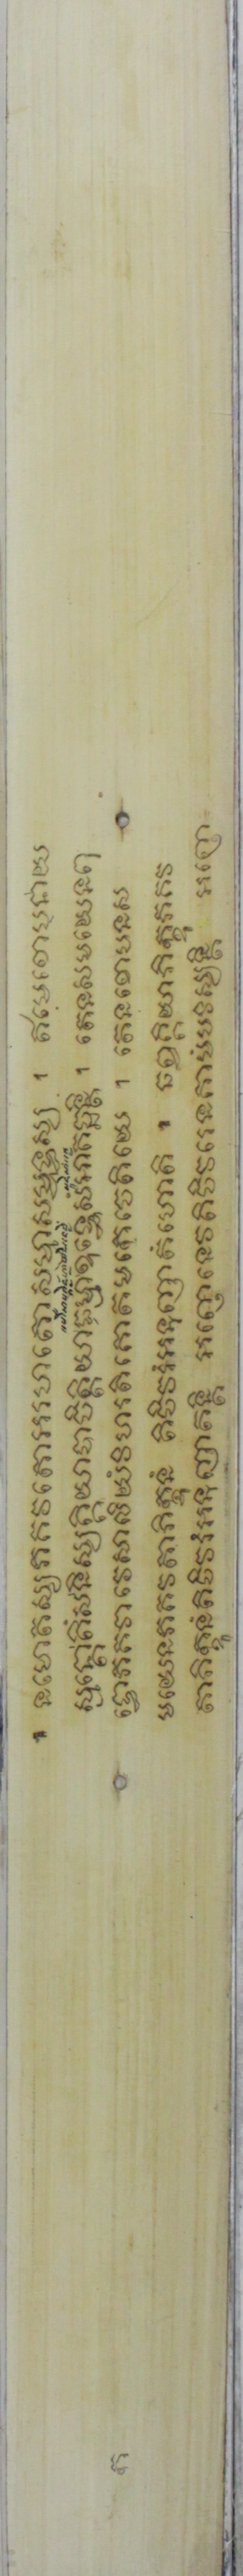 ។ នមោតស្យភគវតោអរហតោសម្មាសម្ពុទ្ធស្ស ។ ឥមេខោបនាយ
ស្មន្តោតិំសនិស្សគ្គិយាបាចិត្តិយាធម្មាឧទ្ទេសំអាគច្ឆន្តិ ។ តេនសមយេនពុ
ទ្ធោភគវាវេសាលិយំវិហរតិគោតមកេចេតិយេ ។ តេនខោបនស
មយេនភគវតាភិក្ខូនំ តិចិវរំអនុញ្ញាតំហោតិ ។ ឆព្វគ្គិយាភិក្ខូភគវ
តាភិក្ខូនំតិចិវរំអនុញ្ញាតន្តិ អញ្ញេនេវតិចិវរេនគាមំបវិស្សន្តិ អញ្ញេ
ក